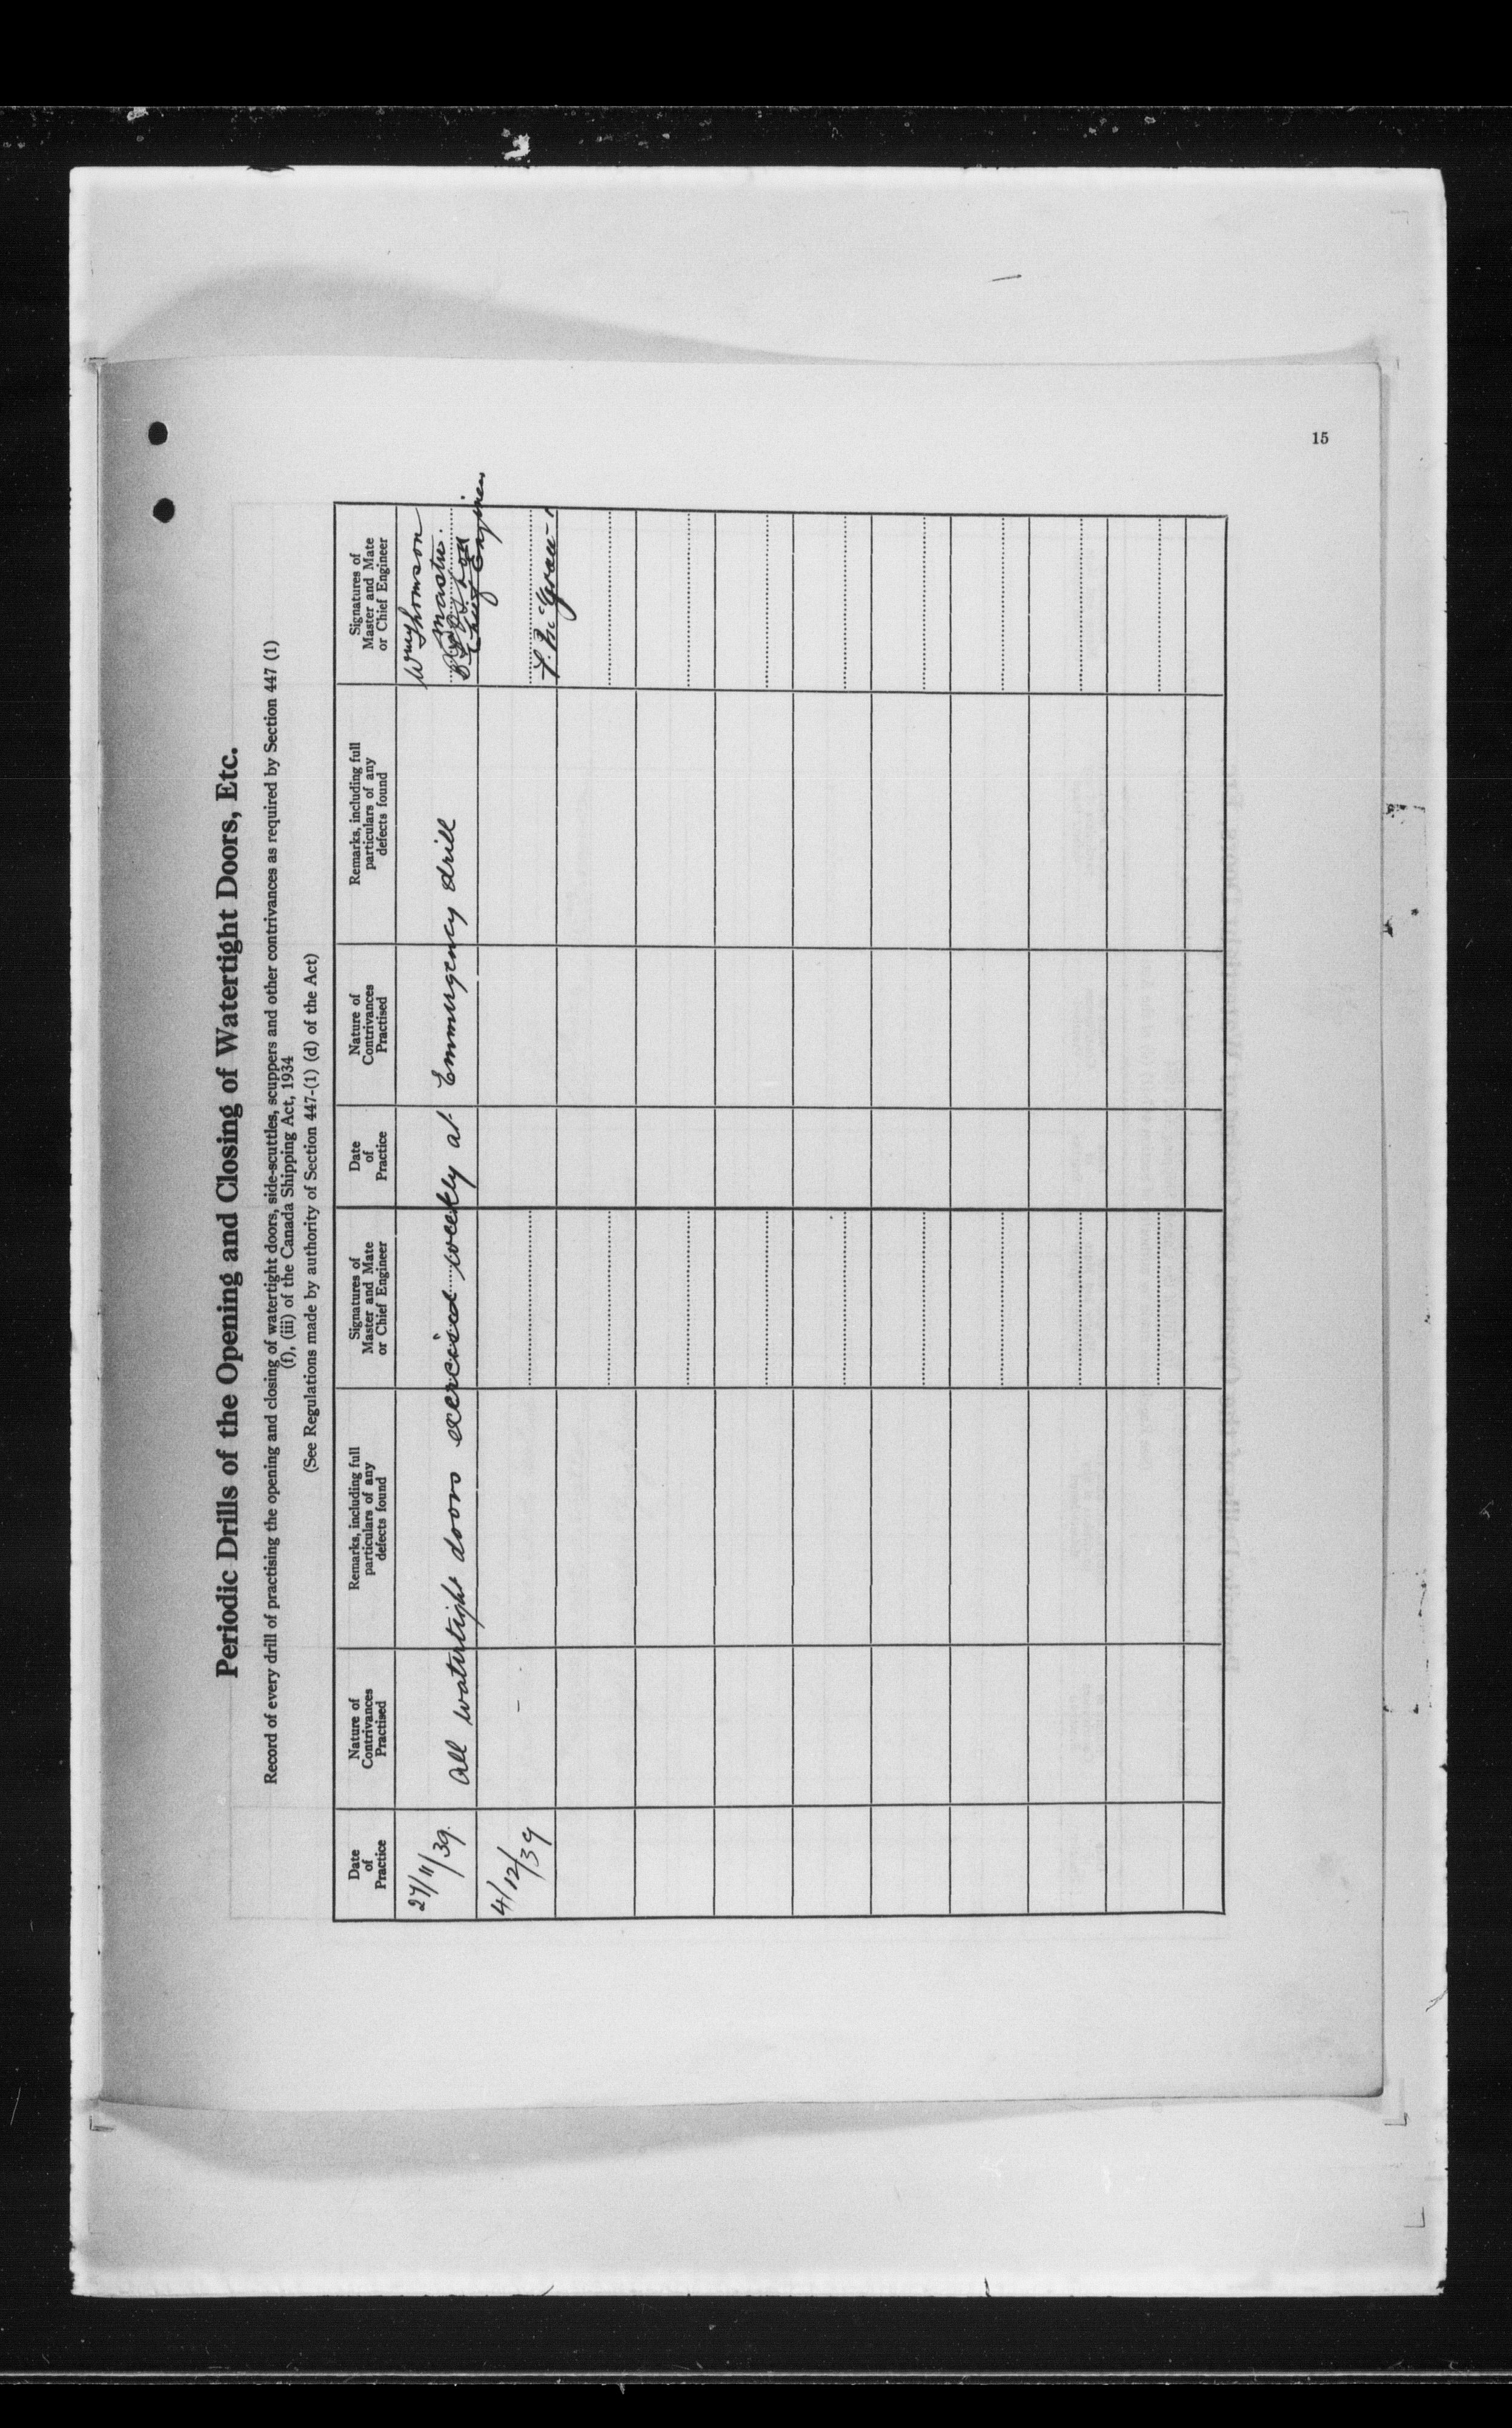 15
Periodic Drills of the Opening and Closing of Watertight Doors, Etc.
Record of every drill of practising the opening and closing of watertight doors, side-scuttles, scuppers and other contrivances as required by Section 447 (1)
(f), (iii) of the Canada Shipping Act, 1934
(See Regulations made by authority of Section 447-(1) (d) of the Act)
Date of Practice
Nature of Contrivances Practised
Remarks, including full particulars of any defects found
Signatures of Master and Mate or Chief Engineer
Date of Practice
Nature of Contrivances Practised
Remarks, including full particulars of any defects found
Signatures of Master and Mate or Chief Engineer
27/11/39.
All watertight doors exercised weekly at Emmergency drill
Wm Thomson
Master.
Chief Engineer
4/12/39